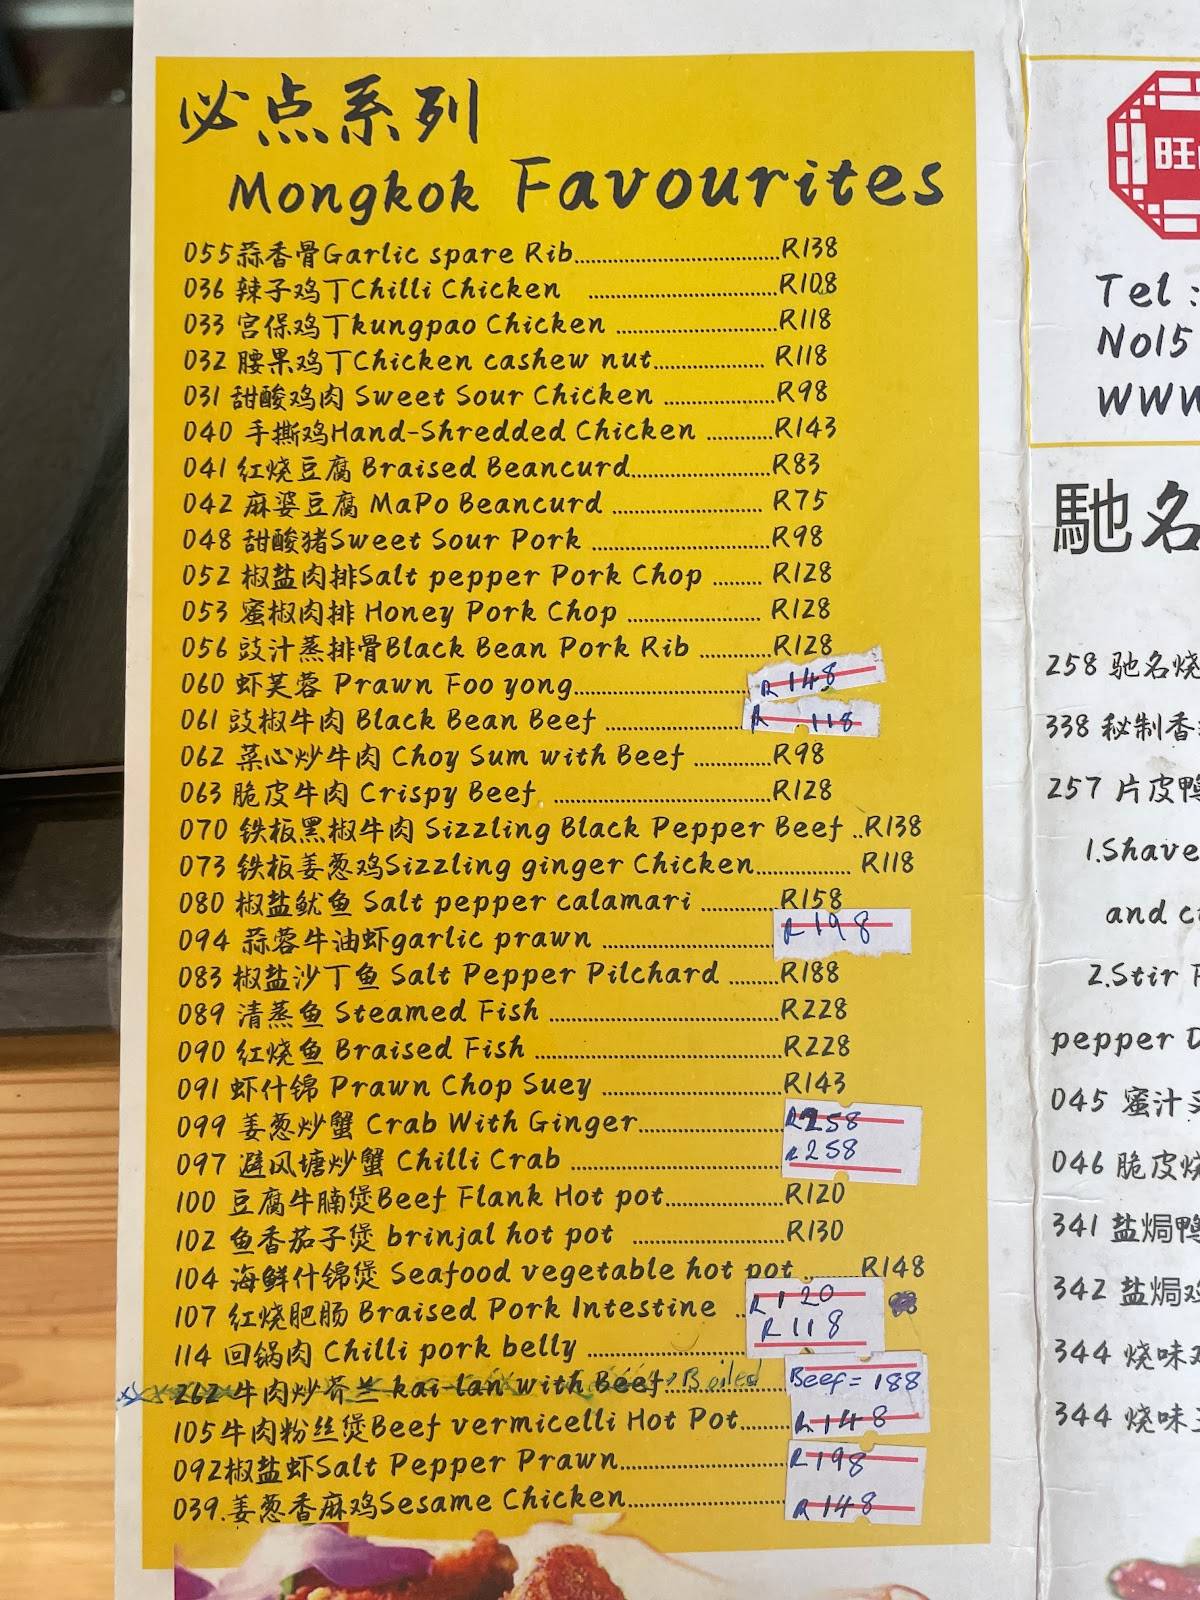 必点系列
Mongkok Favourites
055蒜香骨Garlic spare Rib....................R138
036 辣子鸡丁Chilli Chicken ....................R108
033 宫保鸡丁kungpao Chicken ....................R118
032 腰果鸡丁Chicken cashew nut.................... R118
031 甜酸鸡肉 Sweet Sour Chicken ....................R98
040 手撕鸡Hand-Shredded Chicken ...........R143
041 红烧豆腐 Braised Beancurd....................R83
042 麻婆豆腐 MaPo Beancurd .................... R75
048 甜酸猪Sweet Sour Pork ....................R98
052 椒盐肉排Salt pepper Pork Chop ........ R128
053 蜜椒肉排 Honey Pork Chop .................... R128
056 豉汁蒸排骨Black Bean Pork Rib ............R128
060 虾芙蓉 Prawn Foo yong....................R 148
061 豉椒牛肉 Black Bean Beef ....................R 118
062 菜心炒牛肉 Choy Sum with Beef .............R98
063 脆皮牛肉 Crispy Beef ....................R128
070 铁板黑椒牛肉 Sizzling Black Pepper Beef ..R138
073 铁板姜葱鸡Sizzling ginger Chicken................ R118
080 椒盐鱿鱼 Salt pepper calamari .............R158
094 蒜蓉牛油虾garlic prawn ....................R198
083 椒盐沙丁鱼 Salt Pepper Pilchard ..........R188
089 清蒸鱼 Steamed Fish ....................R228
090 红烧鱼 Braised Fish ....................R228
091 虾什锦 Prawn Chop Suey ....................R143
099 姜葱炒蟹 Crab With Ginger....................R258
097 避风塘炒蟹 Chilli Crab ....................R258
100 豆腐牛腩煲Beef Flank Hot pot....................R120
102 鱼香茄子煲 brinjal hot pot ....................R130
104 海鲜什锦煲 Seafood vegetable hot pot ........R148
107 红烧肥肠 Braised Pork Intestine ..R120
114 回锅肉 Chilli pork belly ....................R118
262 牛肉炒芥兰 kai lan with Beef Boiled ........Beef = 188
105牛肉粉丝煲Beef vermicelli Hot Pot........R148
092椒盐虾Salt Pepper Prawn....................R198
039.姜葱香麻鸡Sesame Chicken....................R148
旺
Tel :
No15
WWW
馳名
258 驰名烧
338 秘制香
257 片皮鸭
1.Shave
and c
2.Stir F
pepper D
045 蜜汁
046 脆皮烧
341 盐焗鸭
342 盐焗鸡
344 烧味
344 烧味